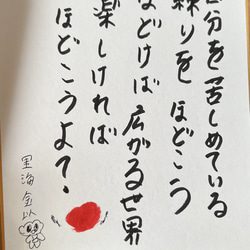 自分を苦しめている
縛りを ほどこう
ほどけば 広がる世界
楽しければ
ほどこうよ?
里海